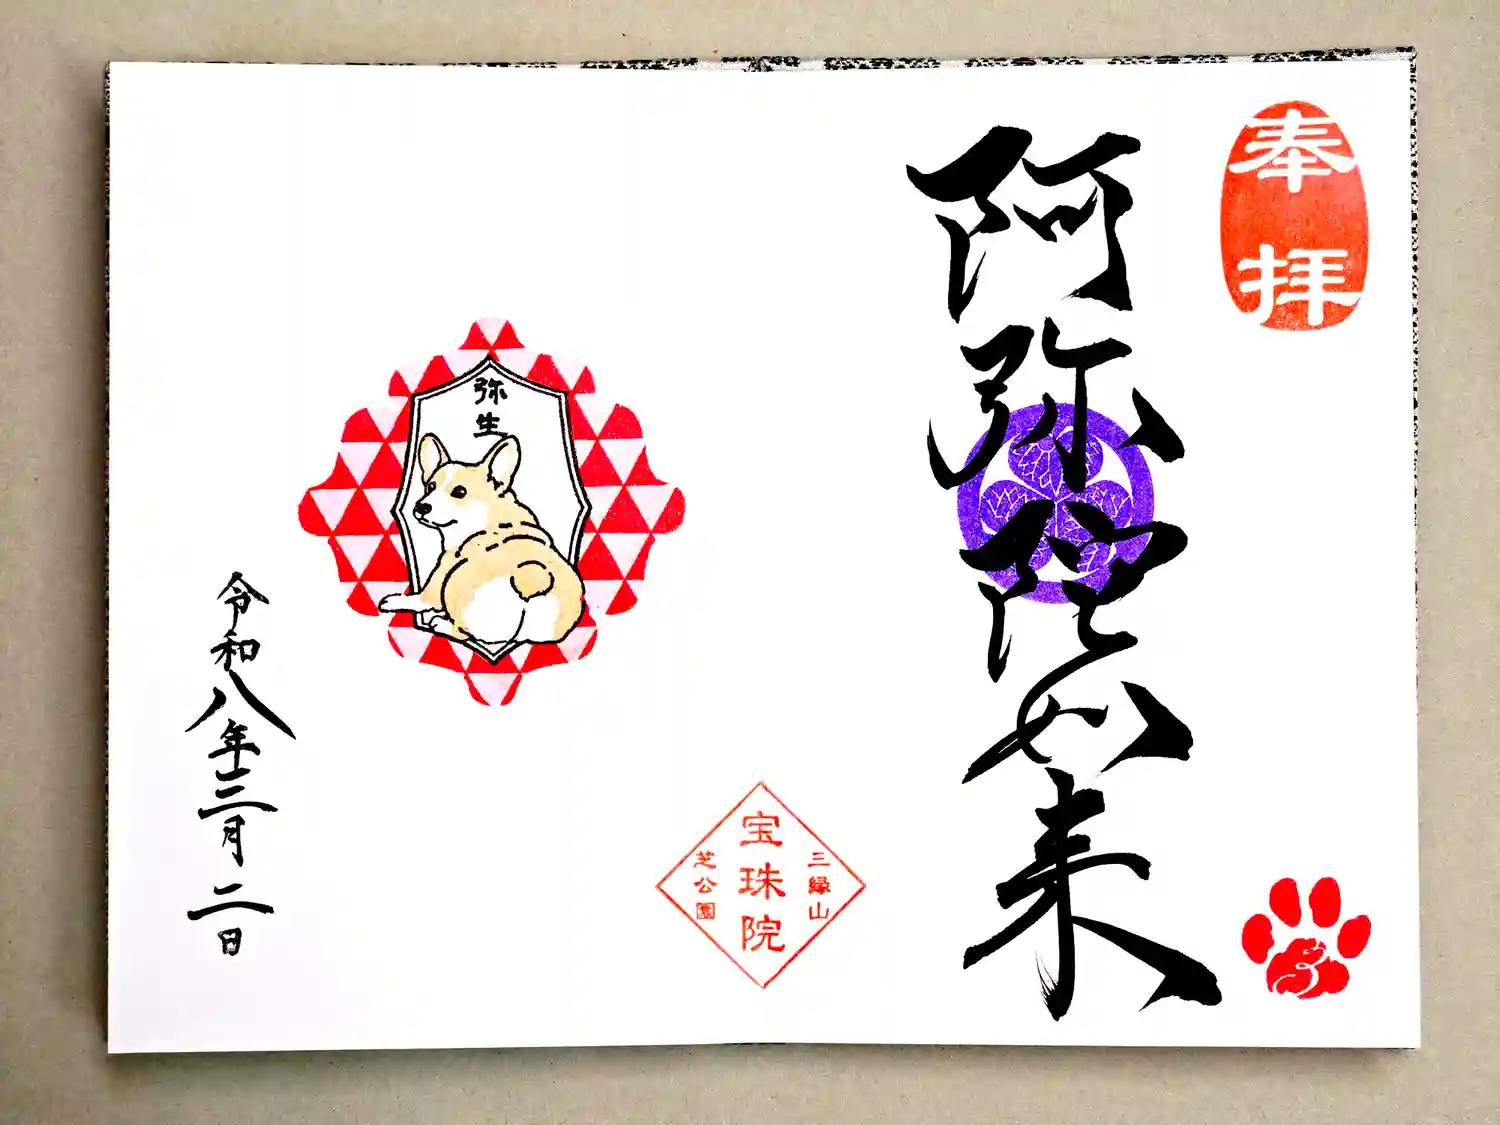 奉拝
阿弥陀如来
三縁山
宝珠院
芝公園
弥生
令和八年三月二日